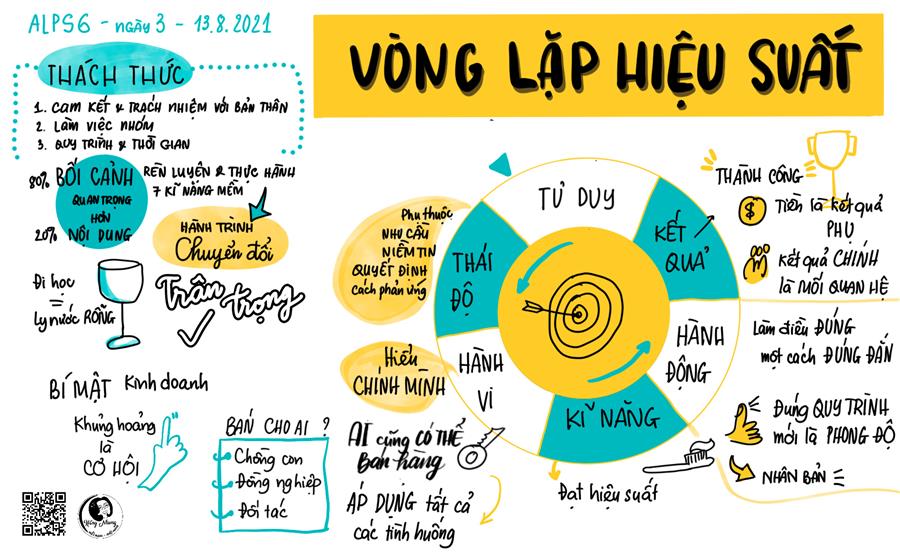 ALPS6 - NGÀY 3 - 13.8.2021
VÒNG LẶP HIỆU SUẤT
THÁCH THỨC
1. CAM KẾT & TRÁCH NHIỆM VỚI BẢN THÂN
2. LÀM VIỆC NHÓM
3. QUY TRÌNH & THỜI GIAN
80% BỐI CẢNH
QUAN TRỌNG
HƠN
20% NỘI DUNG
RÈN LUYỆN & THỰC HÀNH
7 KĨ NĂNG MỀM
HÀNH TRÌNH
Chuyển đổi
Đi học
=
Ly nước RỖNG
Trân trọng
BÍ MẬT Kinh doanh
Khủng hoảng
là
CƠ HỘI
BÁN CHO AI ?
Chồng con
Đồng nghiệp
Đối tác
Phụ thuộc
NHU CẦU
NIỀM TIN
QUYẾT ĐỊNH
cách phản ứng
Hiểu
CHÍNH MÌNH
AI cũng CÓ THỂ
Bán hàng
ÁP DỤNG tất cả
các tình huống
TƯ DUY
KẾT
QUẢ
HÀNH
ĐỘNG
KĨ NĂNG
HÀNH
VI
THÁI
ĐỘ
Đạt hiệu suất
THÀNH CÔNG
$
Tiền là kết quả
PHỤ
Kết quả CHÍNH
là MỐI QUAN HỆ
Làm điều ĐÚNG
một cách ĐÚNG ĐẮN
Đúng QUY TRÌNH
mới là PHONG ĐỘ
NHÂN BẢN